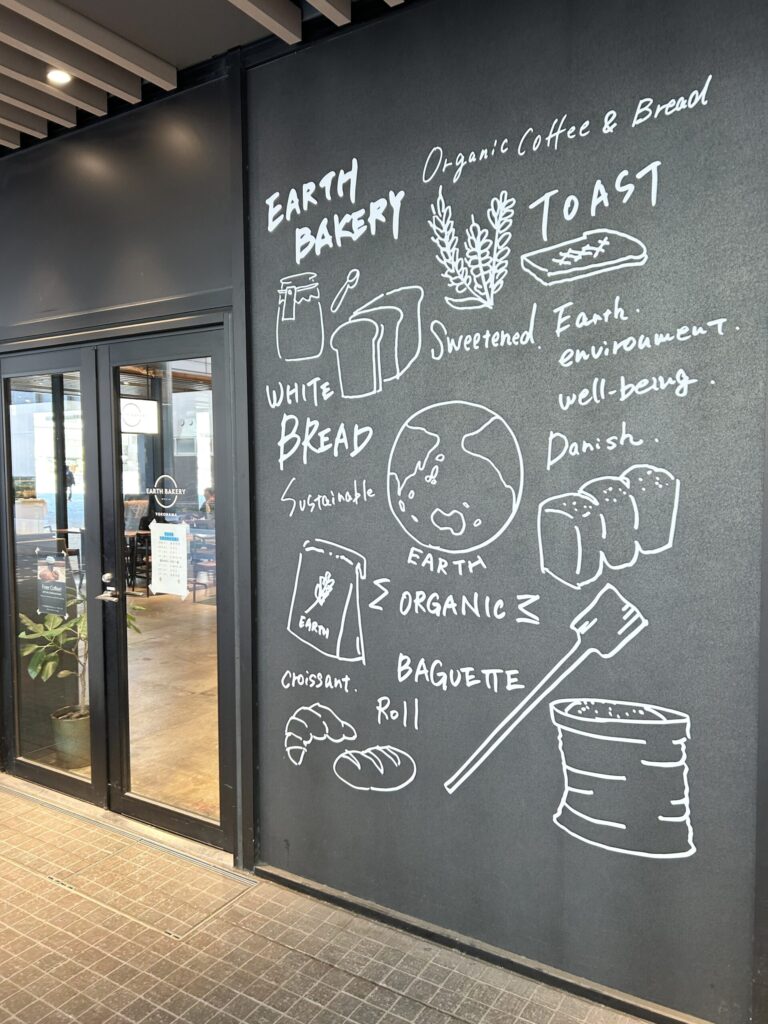 Organic Coffee & Bread
EARTH
BAKERY
TOAST
Sweetened.
Earth.
environment.
well-being.
WHITE
BREAD
Danish.
Sustainable
EARTH
EARTH
ORGANIC
Croissant.
BAGUETTE
Roll
EARTH BAKERY
YOKOHAMA
Free Coffee!